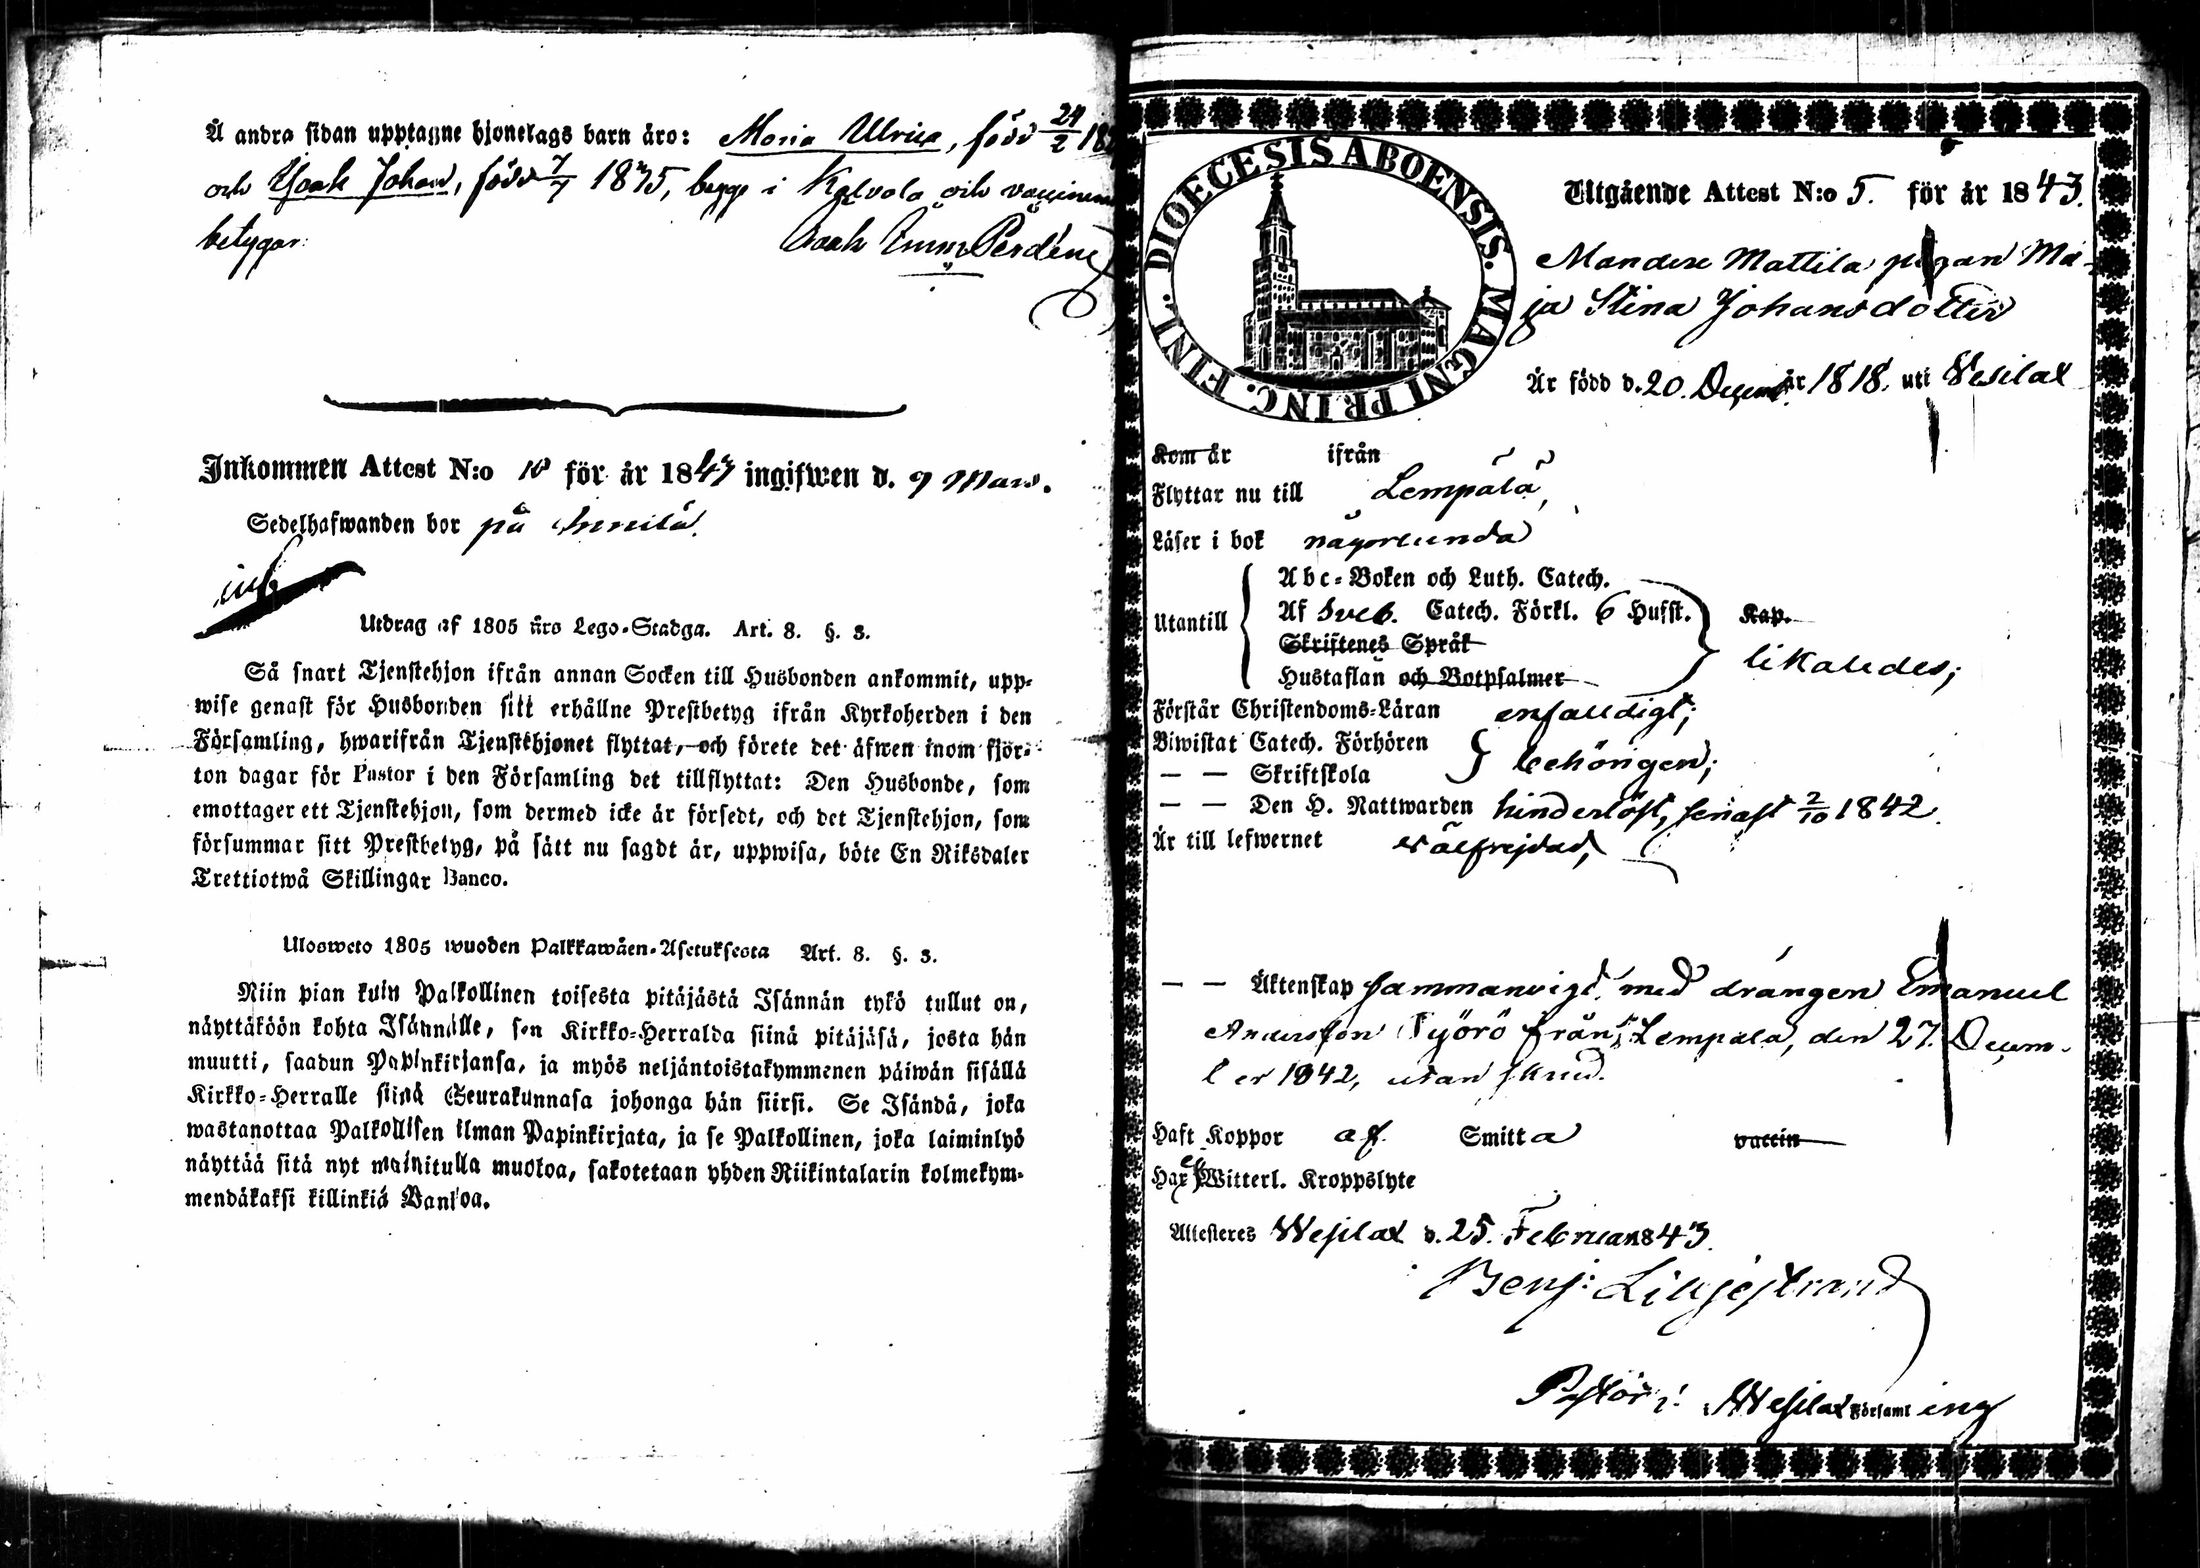 Å andra sidan upptagne hjonelags barn äro: Maria Ulrica, född 24/2
och Isaak Johan, född 7/7 1835, begge i Kalvola och
betygar: Isaak Emm: Perdén
Inkommen Attest N:o 10 för år 1843 ingifwen d. 9 Mars.
Sedelhafwanden bor på Innilä.
Utdrag af 1805 års Lego-Stadga. Art. 8. §. 3.
Så snart Tjenstehjon ifrån annan Socken till Husbonden ankommit, upp-
wise genast för Husbonden sitt erhållne Prestbetyg ifrån Kyrkoherden i den
Församling, hwarifrån Tjenstehjonet flyttat, och förete det äfwen inom fjor-
ton dagar för Pastor i den Församling det tillflyttat: Den Husbonde, som
emottager ett Tjenstehjon, som dermed icke är försedt, och det Tjenstehjon, som
försummar sitt Prestbetyg, på sätt nu sagdt är, uppwisa, böte En Riksdaler
Trettiotwå Skillingar Banco.
Ulosweto 1805 wuoden Palkkawäen-Asetuksesta Art. 8. §. 3.
Niin pian kuin Palkollinen toisesta pitäjästä Isännän tykö tullut on,
näyttäköön kohta Isännälle, sen Kirkko-Herralda siinä pitäjäsä, josta hän
muutti, saadun Papinkirjansa, ja myös neljäntoistakymmenen päiwän sisällä
Kirkko-Herralle siinä Seurakunnasa johonga hän siirsi. Se Isändä, joka
wastanottaa Palkollisen ilman Papinkirjata, ja se Palkollinen, joka laiminlyö
näyttää sitä nyt mainitulla muoloa, sakotetaan yhden Riikintalarin kolmekym-
mendäkaksi killinkiä Bankoa.
DIOECESIS ABOENSIS. MAGNI PRINC. FINL.
Utgående Attest N:o 5. för år 1843.
Mattila pigan Ma-
ja Stina Johansdotter
Är född d. 20. Decemb. år 1818. uti Wesilax
Kom år ifrån
Flyttar nu till Lempälä,
Läser i bok någorlunda
Utantill
Abc-Boken och Luth. Catech.
Af Sveb. Catech. Förkl. 6 Hufst. Kap.
Skriftenes Språk
Hustaflan och Botpsalmer
likaledes;
Förstår Christendoms-Läran enfalldigt;
Biwistat Catech. Förhören
— — Skriftskola
behörigen;
— — Den H. Nattwarden hinderlöst, senast 2/10 1842.
Är till lefwernet wälfrejdad,
— — Äktenskap sammanvigd med drängen Emanuel
Andersson Työrö från Lempälä, den 27. Decem-
ber 1842, utan skrud.
Haft Koppor af Smitta vaccin
Har ej Witterl. Kroppslyte
Attesteres Wesilax d. 25. Februari 1843.
Benj: Liljestrand
Pastor i Wesilax Församling